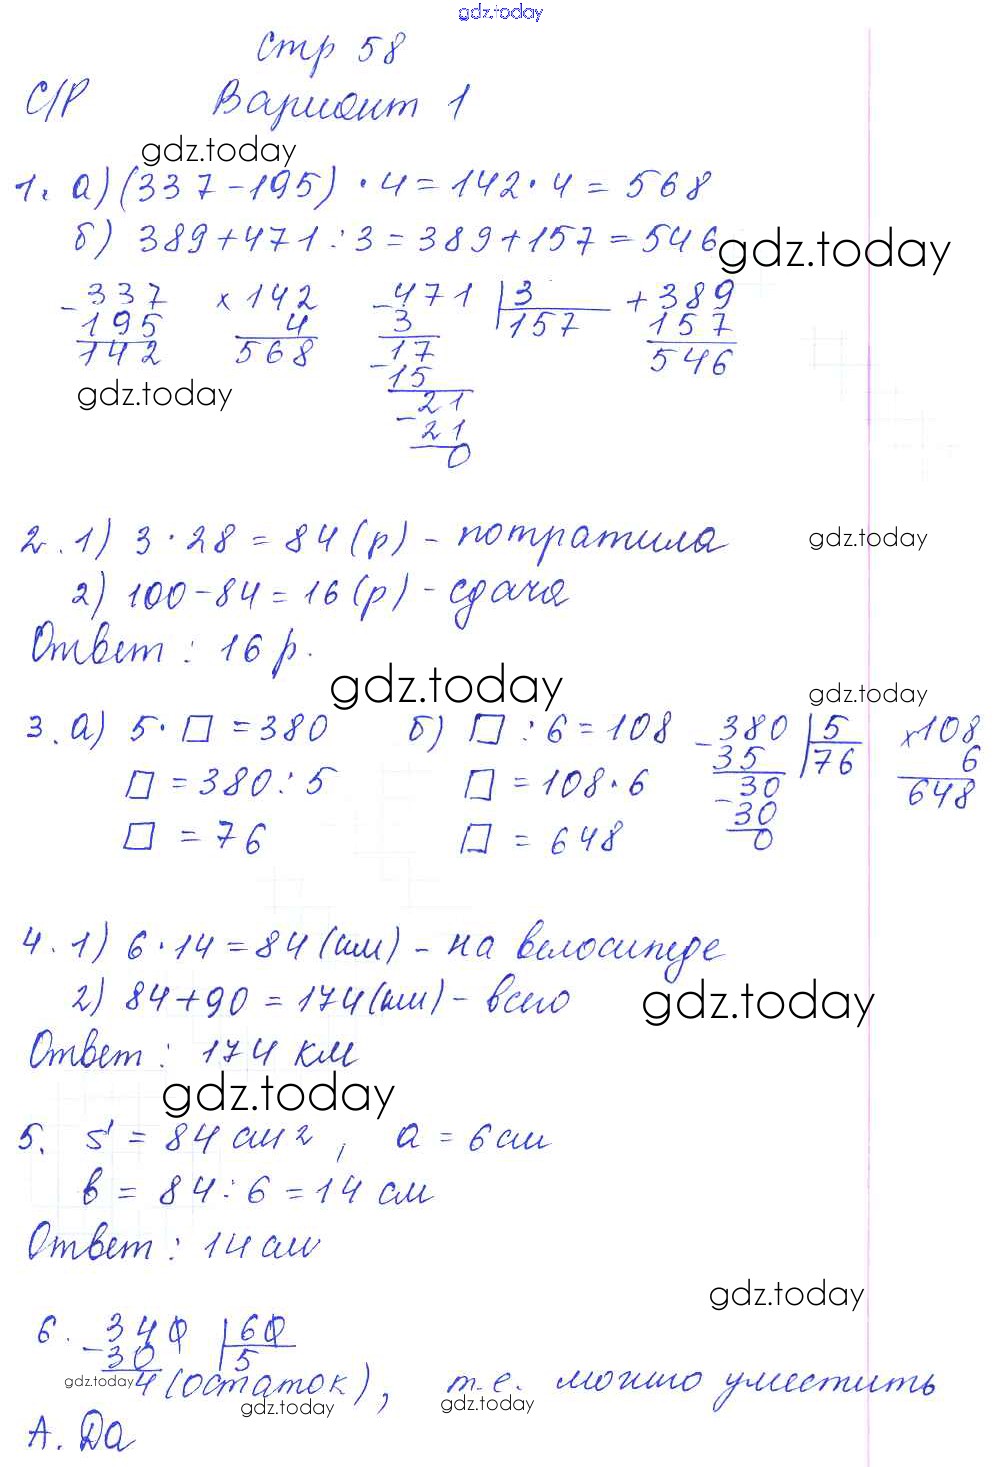 gdz.today
Стр 58
С/Р Вариант 1
gdz.today
1. а) (337-195) · 4 = 142 · 4 = 568
б) 389+471:3=389+157=546
gdz.today
-337 × 142 -471 |3 +389
195 4 3 157 157
142 568 -17 546
-15
gdz.today
-21
21
0
2. 1) 3 · 28 = 84 (р) - потратила
gdz.today
2) 100-84=16 (р) - сдача
Ответ: 16 р.
gdz.today
gdz.today
3. а) 5 · □ = 380 б) □ : 6 = 108 -380 |5 ×108
□ = 380 : 5 □ = 108 · 6 35 76 6
□ = 76 □ = 648 -30 648
30
0
4. 1) 6 · 14 = 84 (км) - на велосипеде
2) 84+90 = 174 (км) - всего
gdz.today
Ответ: 174 км
gdz.today
5. S = 84 см2, а = 6 см
в = 84 : 6 = 14 см
Ответ: 14 см
gdz.today
6. -340 |60
30 5
gdz.today
4 (остаток), т.е. можно уместить
gdz.today
gdz.today
А. Да